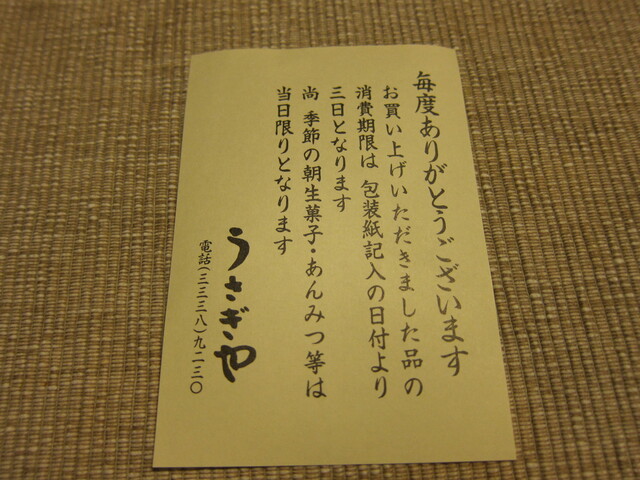 毎度ありがとうございます
お買い上げいただきました品の
消費期限は 包装紙記入の日付より
三日となります
尚 季節の朝生菓子・あんみつ等は
当日限りとなります
うさぎや
電話(三三三八)九二三〇